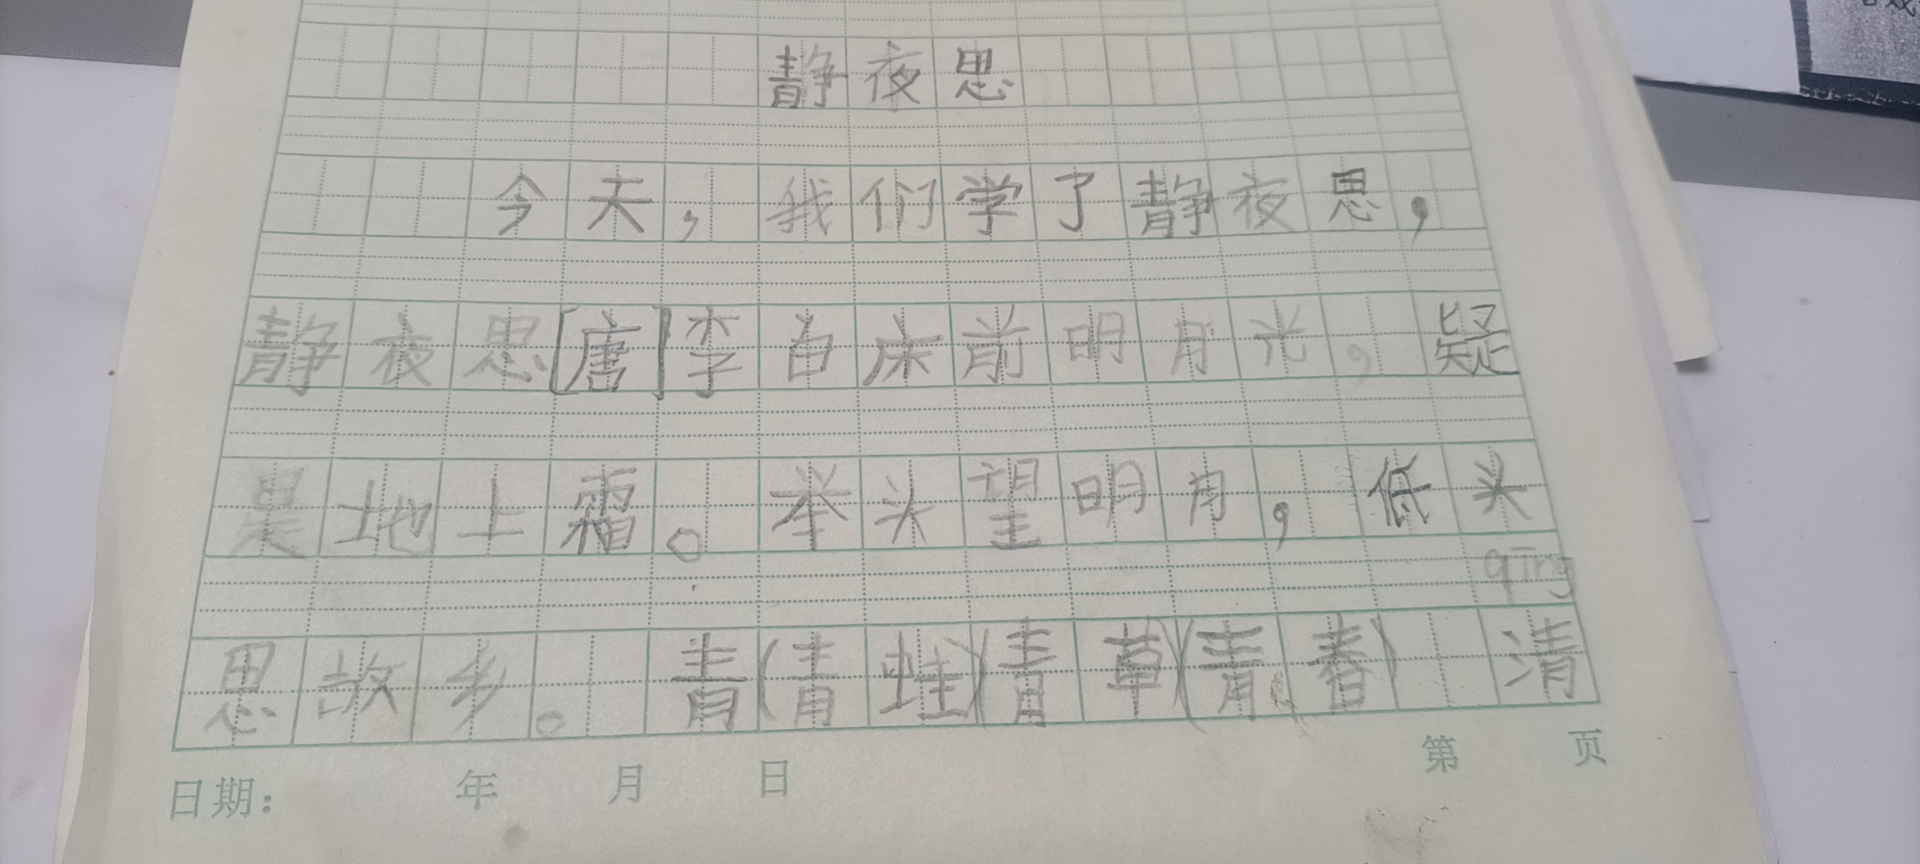 静夜思
今天，我们学了静夜思，
静夜思[唐]李白床前明月光，疑
是地上霜。举头望明月，低头
qīng
思故乡。青(青蛙)(青草)(青春) 清
日期： 年 月 日 第 页